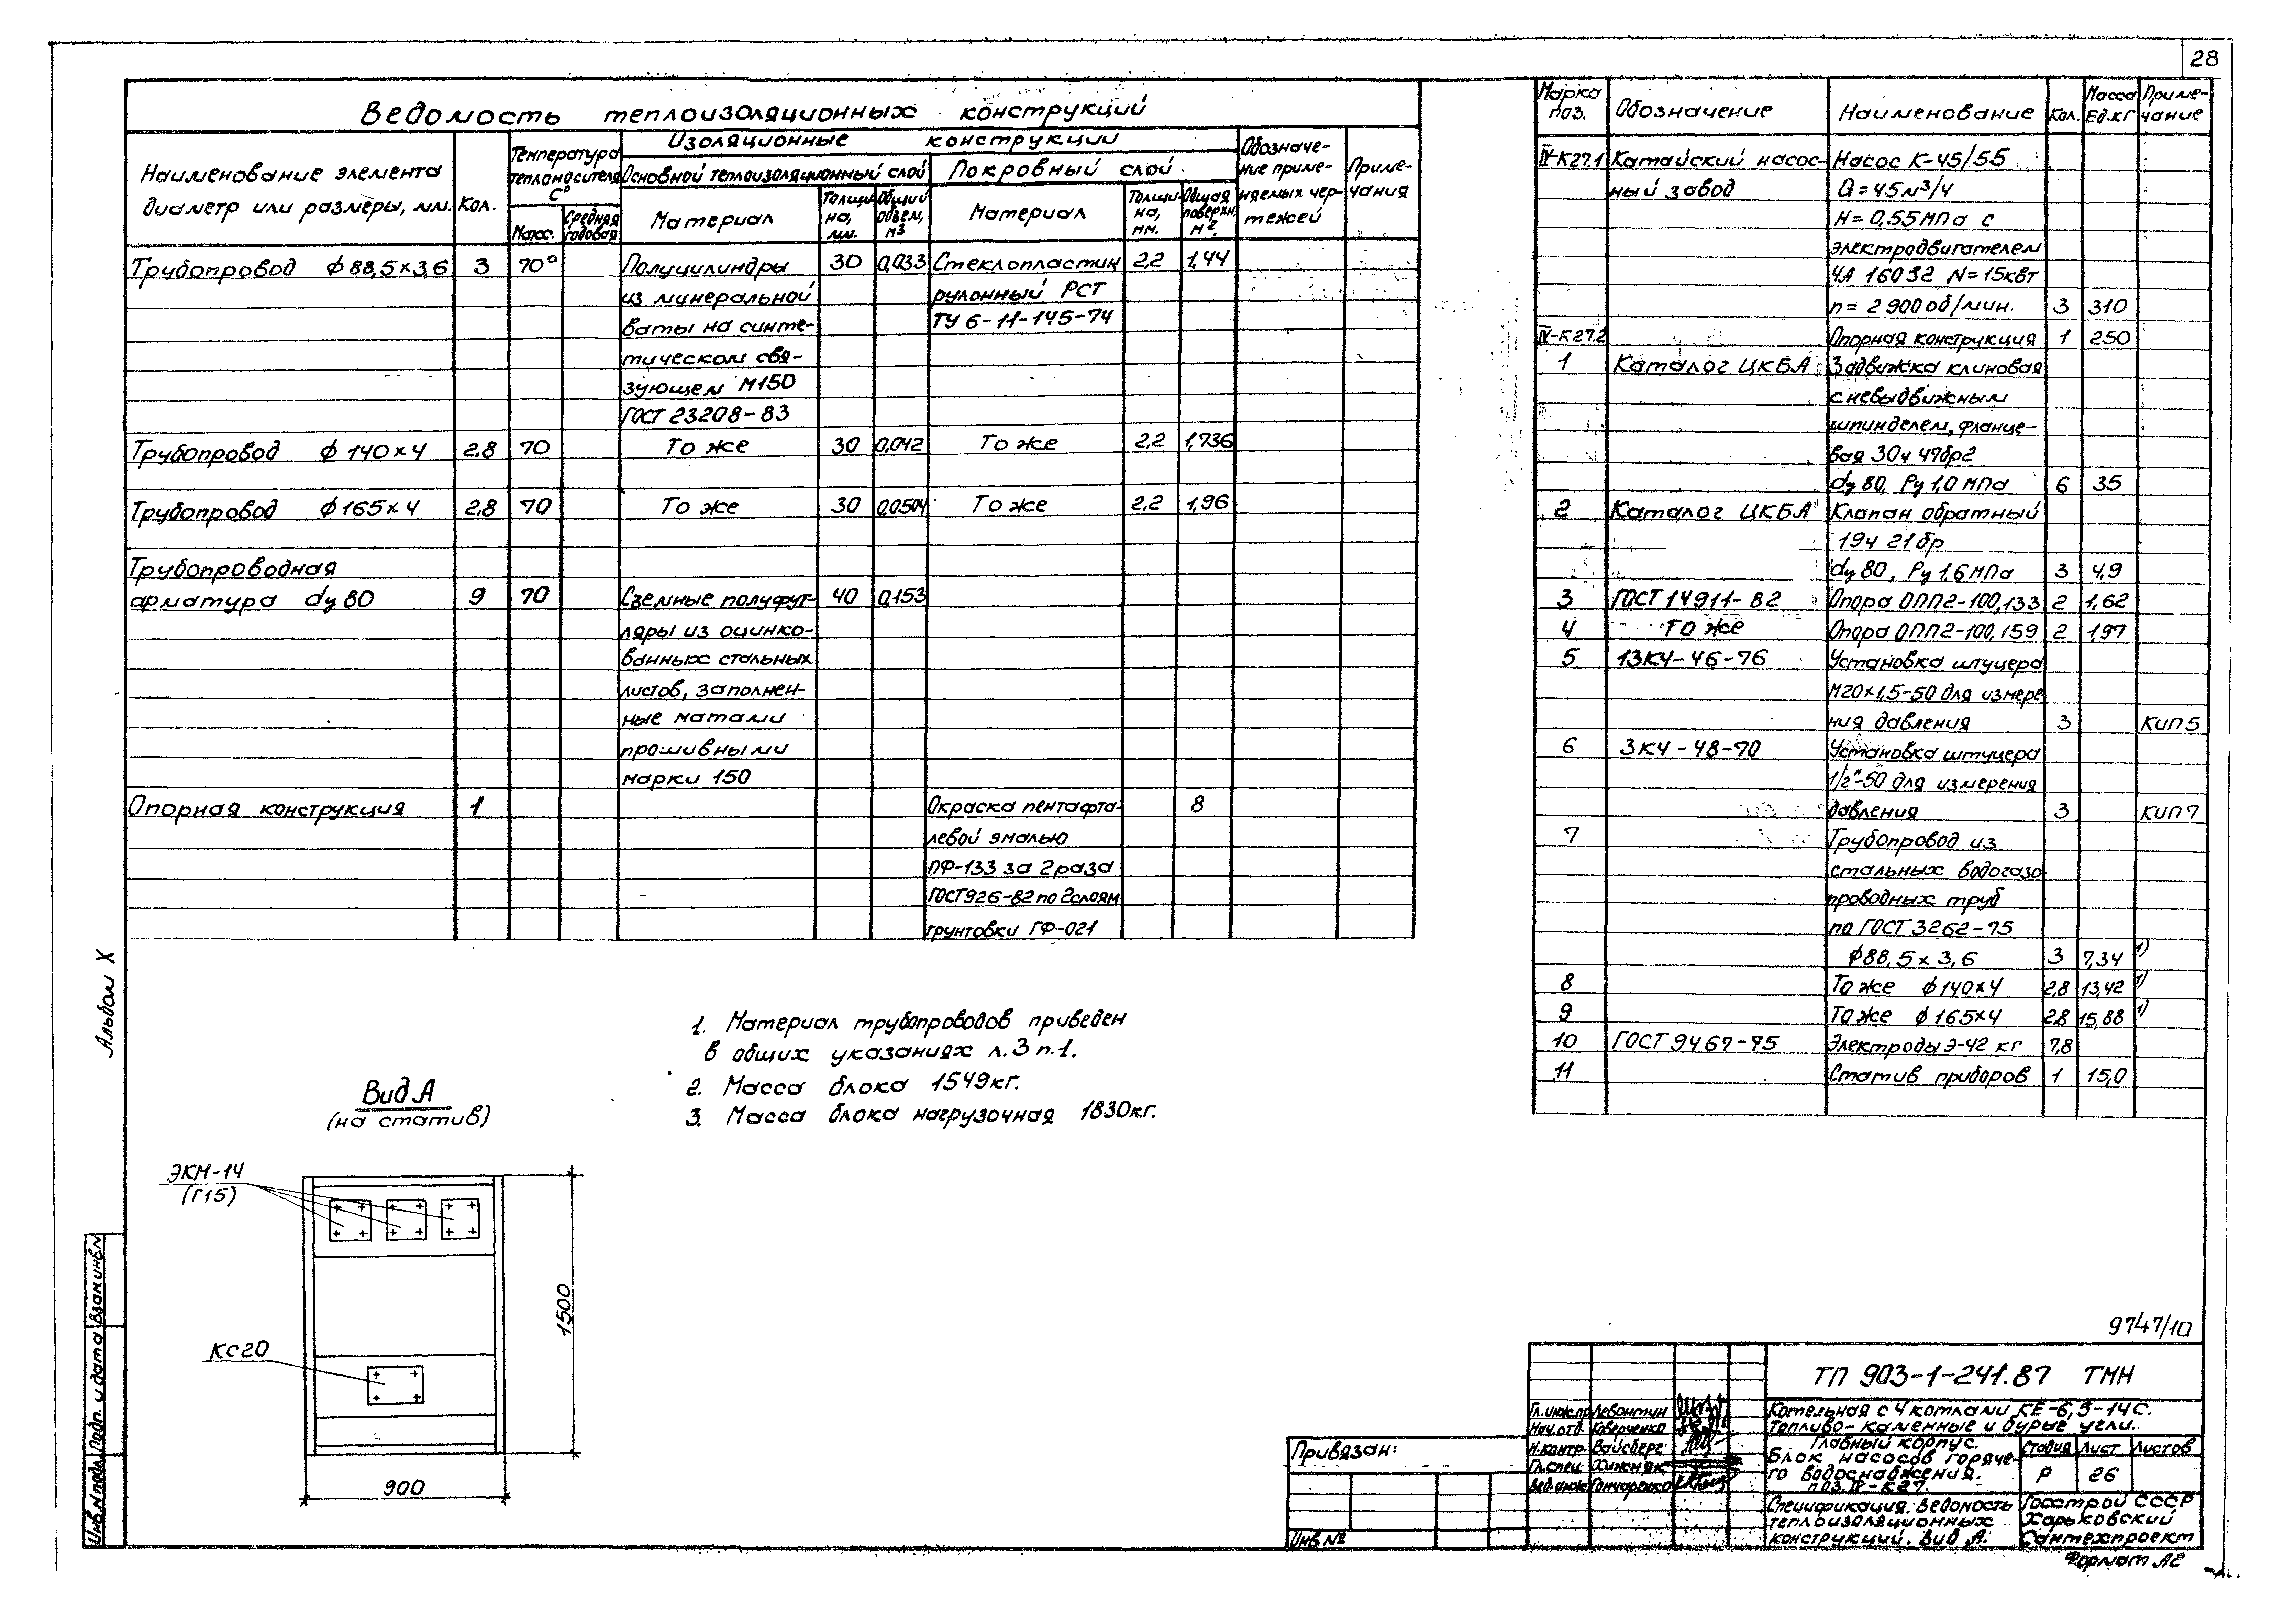 28
Ведомость теплоизоляционных конструкций
Наименование элемента
диаметр или размеры, мм.
Кол.
Температура
теплоносителя
С°
Макс.
Средняя
годовая
Изоляционные конструкции
Основной теплоизоляционный слой
Покровный слой
Материал
Толщи-
на,
мм.
Общий
объем,
м3
Материал
Толщи-
на,
мм.
Общая
поверхн.
м2.
Обозначе-
ние приме-
няемых чер-
тежей
Приме-
чания
Трубопровод ф88,5×3,6 3 70° Полуцилиндры 30 0,033 Стеклопластик 2,2 1,44
из минеральной рулонный РСТ
ваты на синте- ТУ 6-11-145-74
тическом свя-
зующем М150
ГОСТ 23208-83
Трубопровод ф140×4 2,8 70 То же 30 0,042 То же 2,2 1,736
Трубопровод ф165×4 2,8 70 То же 30 0,0504 То же 2,2 1,96
Трубопроводная
арматура dу80 9 70 Сземные полуфут- 40 0,153
ляры из оцинко-
ванных стальных
листов, заполнен-
ные матами
прошивными
марки 150
Опорная конструкция 1 Окраска пентафта- 8
левой эмалью
ПФ-133 за 2 раза
ГОСТ926-82 по 2слоям
грунтовки ГФ-021
Марка
поз.
Обозначение
Наименование
Кол.
Масса
Ед.кг
Приме-
чание
IV-К27.1 Катайский насос- Насос К-45/55
ный завод Q=45м³/ч
Н=0,55МПа с
электродвигателем
4А 160S2 N=15квт
n=2900об/мин. 3 310
IV-К27.2 Опорная конструкция 1 250
1 Каталог ЦКБА Задвижка клиновая
с невыдвижным
шпинделем, фланце-
вая 30ч 47бр2
dу 80, Ру 1,0 МПа 6 35
2 Каталог ЦКБА Клапан обратный
19ч 21бр
dу 80, Ру 1,6МПа 3 4,9
3 ГОСТ 14911-82 Опора ОПП2-100,133 2 1,62
4 То же Опора ОПП2-100,159 2 1,97
5 13К4-46-76 Установка штуцера
М20×1,5-50 для измере
ния давления 3 КИП5
6 3К4-48-70 Установка штуцера
1/2"-50 для измерения
давления 3 КИП7
7 Трубопровод из
стальных водогазо-
проводных труб
по ГОСТ 3262-75
ф88,5×3,6 3 7,34 1)
8 То же ф140×4 2,8 13,42 1)
9 То же ф165×4 2,8 15,88 1)
10 ГОСТ 9467-75 Электроды Э-42 кг 7,8
11 Статив приборов 1 15,0
1. Материал трубопроводов приведен
в общих указаниях л.3 п.1.
2. Масса блока 1549кг.
3. Масса блока нагрузочная 1830кг.
Альбом X
Вид А
(на статив)
ЭКМ-14
(Г15)
КС20
1500
900
Инв.N подл.
Подп. и дата
Взам.инв.N
9747/10
ТП 903-1-241.87 ТМН
Котельная с 4 котлами КЕ-6,5-14С.
Топливо-каменные и бурые угли.
Гл.инж.пр Левонтин
Нач.отд. Коверченко
Н.контр. Вайсберг
Гл.спец Хижняк
Вед.инж Гончаренко
Главный корпус.
Блок насосов горяче-
го водоснабжения.
поз. IV-К27.
Стадия Лист Листов
Р 26
Спецификация. Ведомость
теплоизоляционных
конструкций. Вид А.
Госстрой СССР
Харьковский
Сантехпроект
Привязан:
Инв №
Формат А2